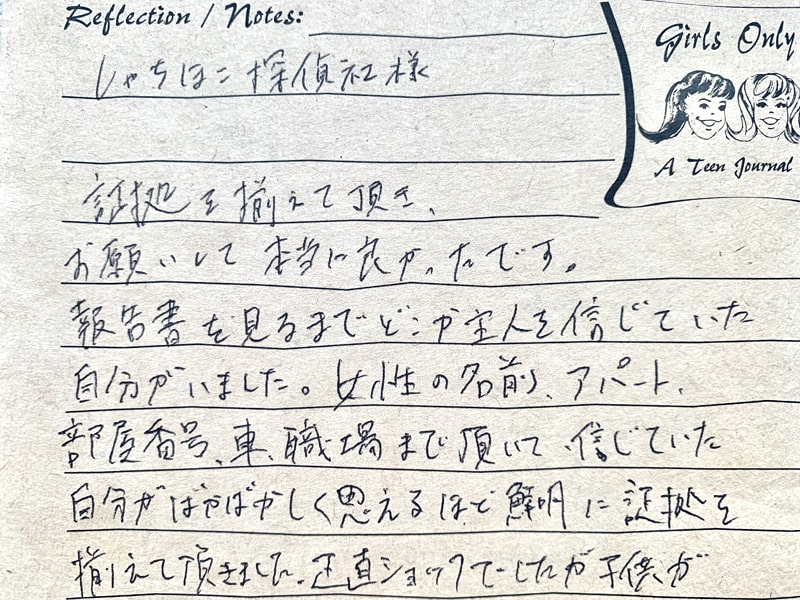 Reflection / Notes:
Girls Only
A Teen Journal
しゃちほこ探偵社様
証拠を揃えて頂き、
お願いして本当に良かったです。
報告書を見るまでどこか主人を信じていた
自分がいました。女性の名前、アパート、
部屋番号、車、職場まで頂いて、信じていた
自分がばかばかしく思えるほど鮮明に証拠を
揃えて頂きました。正直ショックでしたが子供が